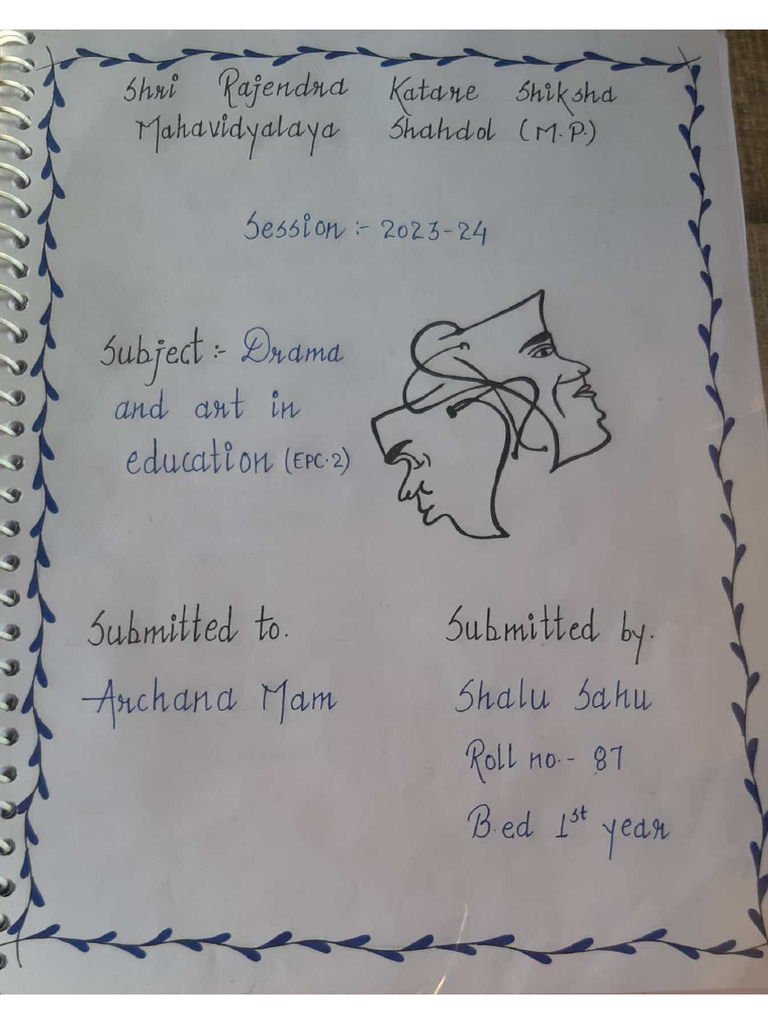 Shri Rajendra Katare Shiksha
Mahavidyalaya Shahdol (M.P.)
Session :- 2023-24
Subject :- Drama
and art in
education (EPC.2)
Submitted to.
Archana Mam
Submitted by.
Shalu Sahu
Roll no.- 87
B.ed 1st year